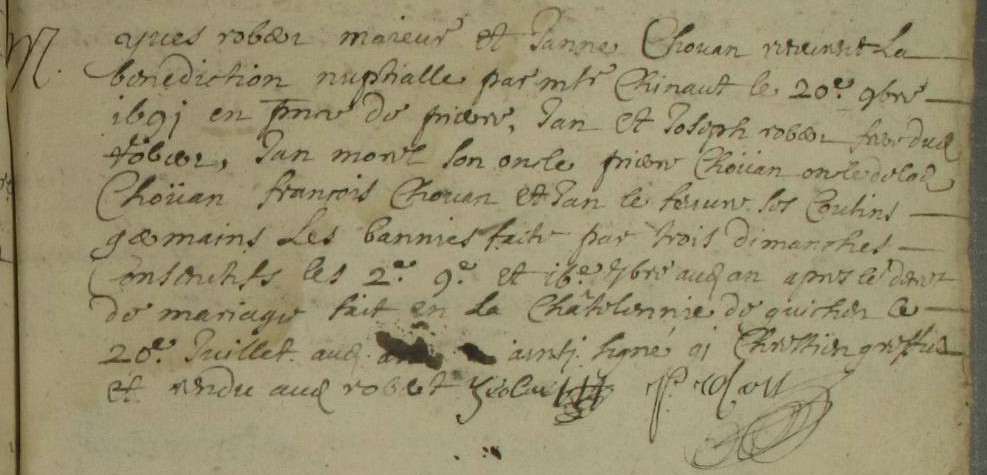 M. yves robert maieur et Janne Choüan receurent La
benediction nuptialle par mre Chinaut le 20e. 9bre
1691 en pnce de pierre, Jan et Joseph robert freres dud
robert, Jan morel son oncle pierre Choüan oncle de lad
Choüan francois Choüan et Jan le ses Cousins
germains Les bannies faite par trois dimanches
Consecutifs les 2e. 9e. et 16e. 7bre aud an apres le decret
de mariage fait en La Châtelennie de le
20e. Juillet aud ainsi signé Chrestien greffier
et rendu aud robert